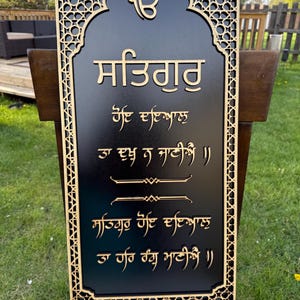 ੴ
ਸਤਿਗੁਰੁ
ਹੋਇ ਦਇਆਲੁ
ਤਾ ਦੁਖੁ ਨ ਜਾਣੀਐ ॥
ਸਤਿਗੁਰੁ ਹੋਇ ਦਇਆਲੁ
ਤਾ ਹਰਿ ਰੰਗੁ ਮਾਣੀਐ ॥